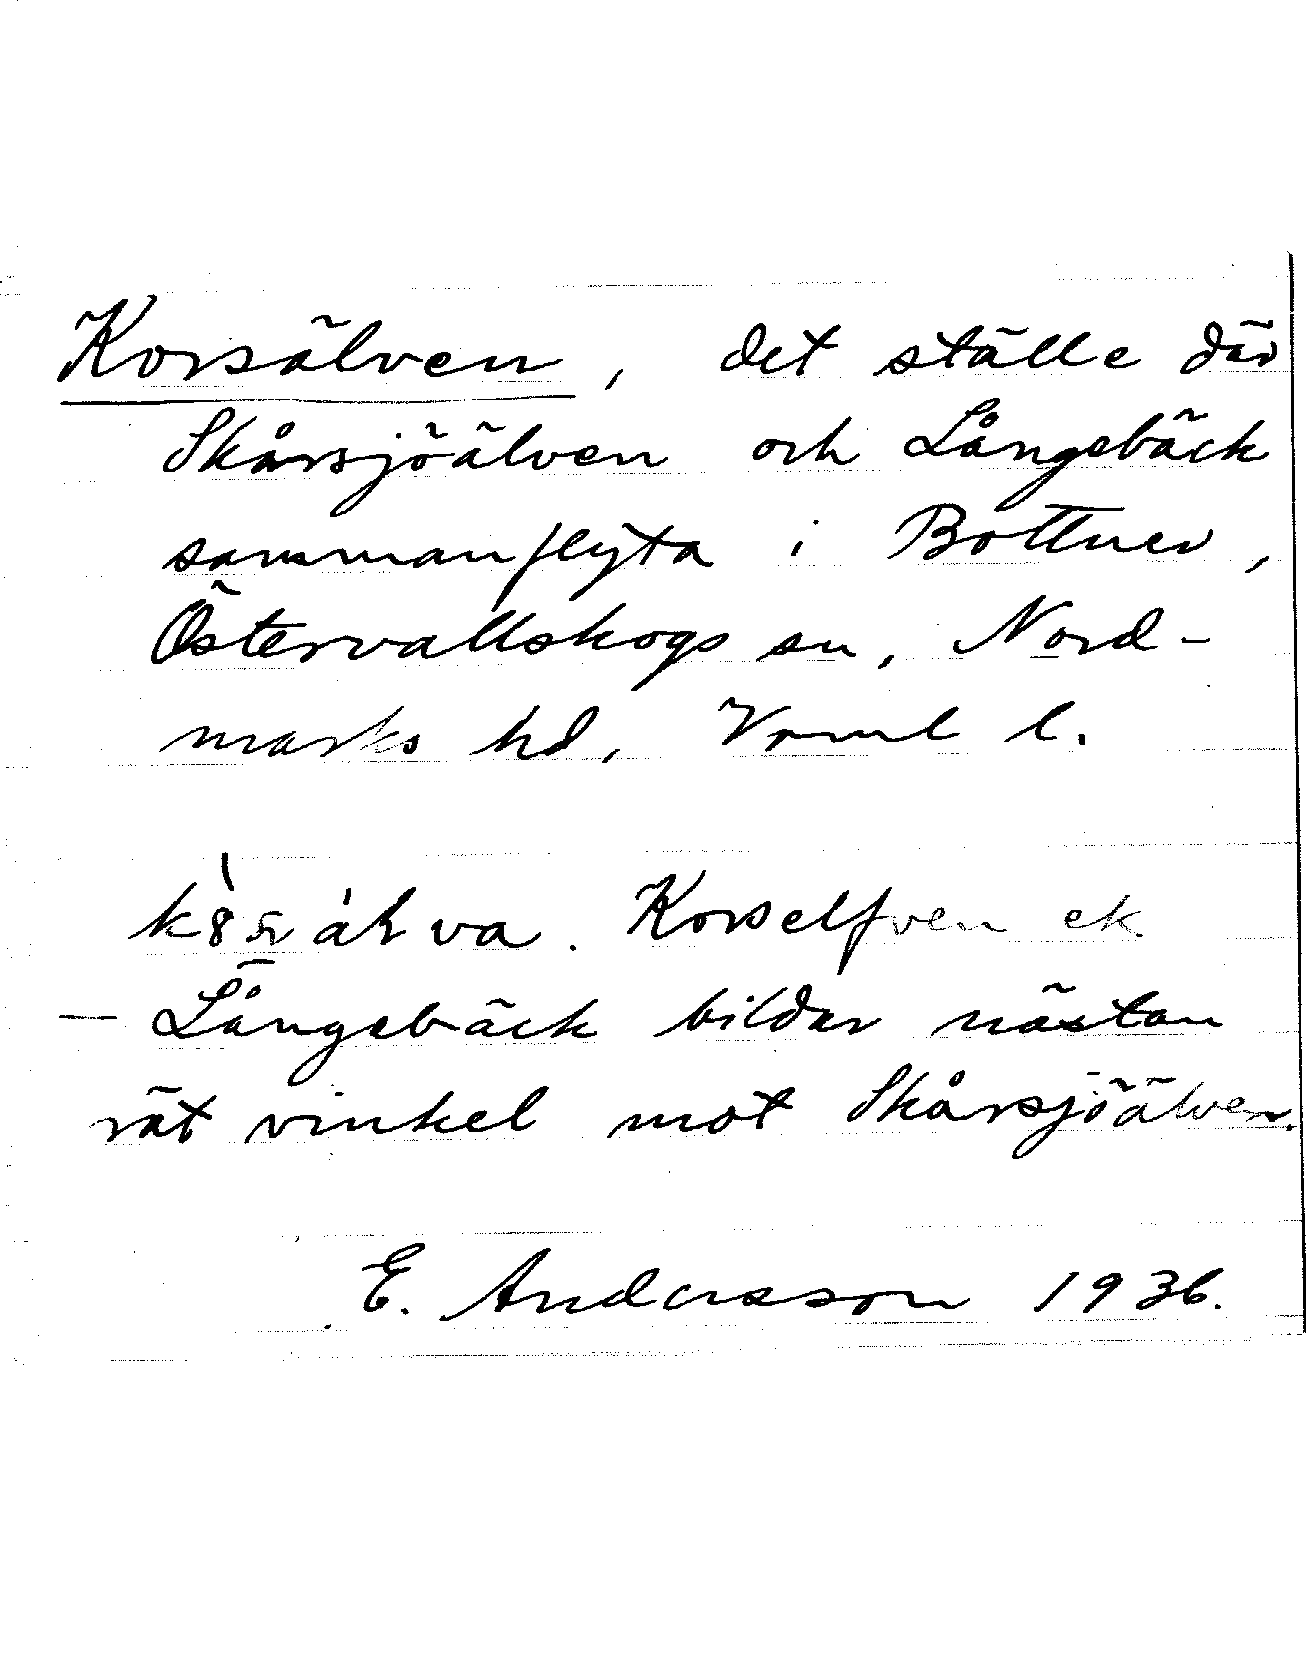 Korsälven, det ställe där
Skårsjöälven och Långebäck
sammanflyta i Bottnev,
Östervallskogs sn, Nord-
marks hd, Vrml l.
Korselfven ek.
— Långebäck bildar nästan
rät vinkel mot Skårsjöälven.
E. Andersson 1936.